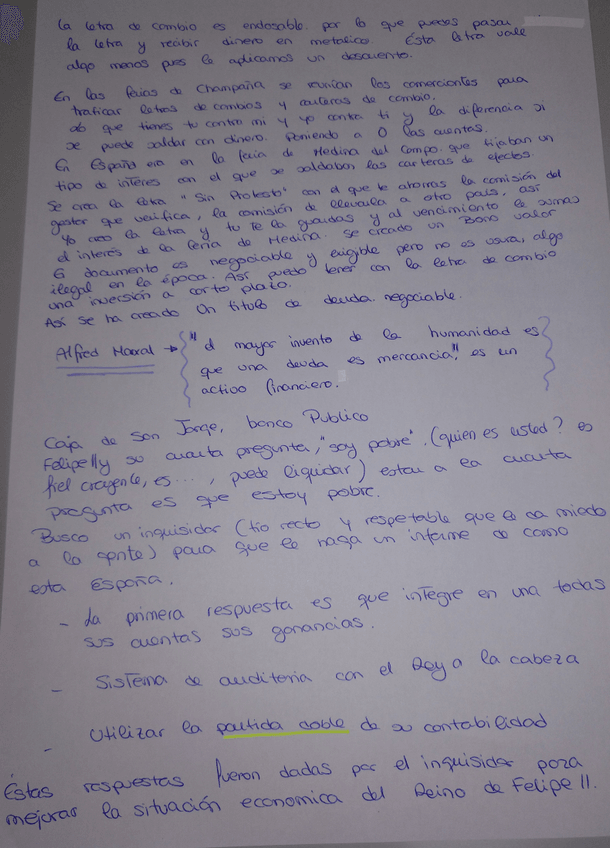 La letra de cambio es endosable por lo que puedes pasar
la letra y recibir dinero en metalico. Esta letra vale
algo menos pues le aplicamos un descuento.
En las ferias de Champaña se reunían los comerciantes para
traficar letras de cambios y carteras de cambio.
lo que tienes tu contra mi y yo contra ti y la diferencia si
se puede saldar con dinero. Poniendo a 0 las cuentas.
En España era en la feria de Medina del Campo. que fijaban un
tipo de interes con el que se saldaban las carteras de efectos.
Se crea la letra "Sin Protesto" con el que te ahorras la comisión del
gestor que verifica, la comisión de llevarla a otro país, así
Yo creo la letra y tu te la guardas y al vencimiento le sumas
el interés de la feria de Medina. Se creado un Bono valor
El documento es negociable y exigible pero no es usura, algo
ilegal en la época. Así puedo tener con la letra de cambio
una inversión a corto plazo.
Así se ha creado Un titulo de deuda negociable.
Alfred → "el mayor invento de la humanidad es
que una deuda es mercancia", es un
activo financiero.
Caja de San Jorge, banco Publico
Felipe II y su cuarta pregunta, "soy pobre". (quien es usted? es
fiel creyente, es ..., puede liquidar) estar a la cuarta
pregunta es que estoy pobre.
Busco un inquisidor (tio recto y respetable que le da miedo
a la gente) para que le haga un informe de como
esta España.
- La primera respuesta es que integre en una todas
sus cuentas sus ganancias.
- Sistema de auditeria con el Rey a la cabeza
- Utilizar la partida doble de su contabilidad
Estas respuestas fueron dadas por el inquisidor para
mejorar la situación economica del Reino de Felipe II.